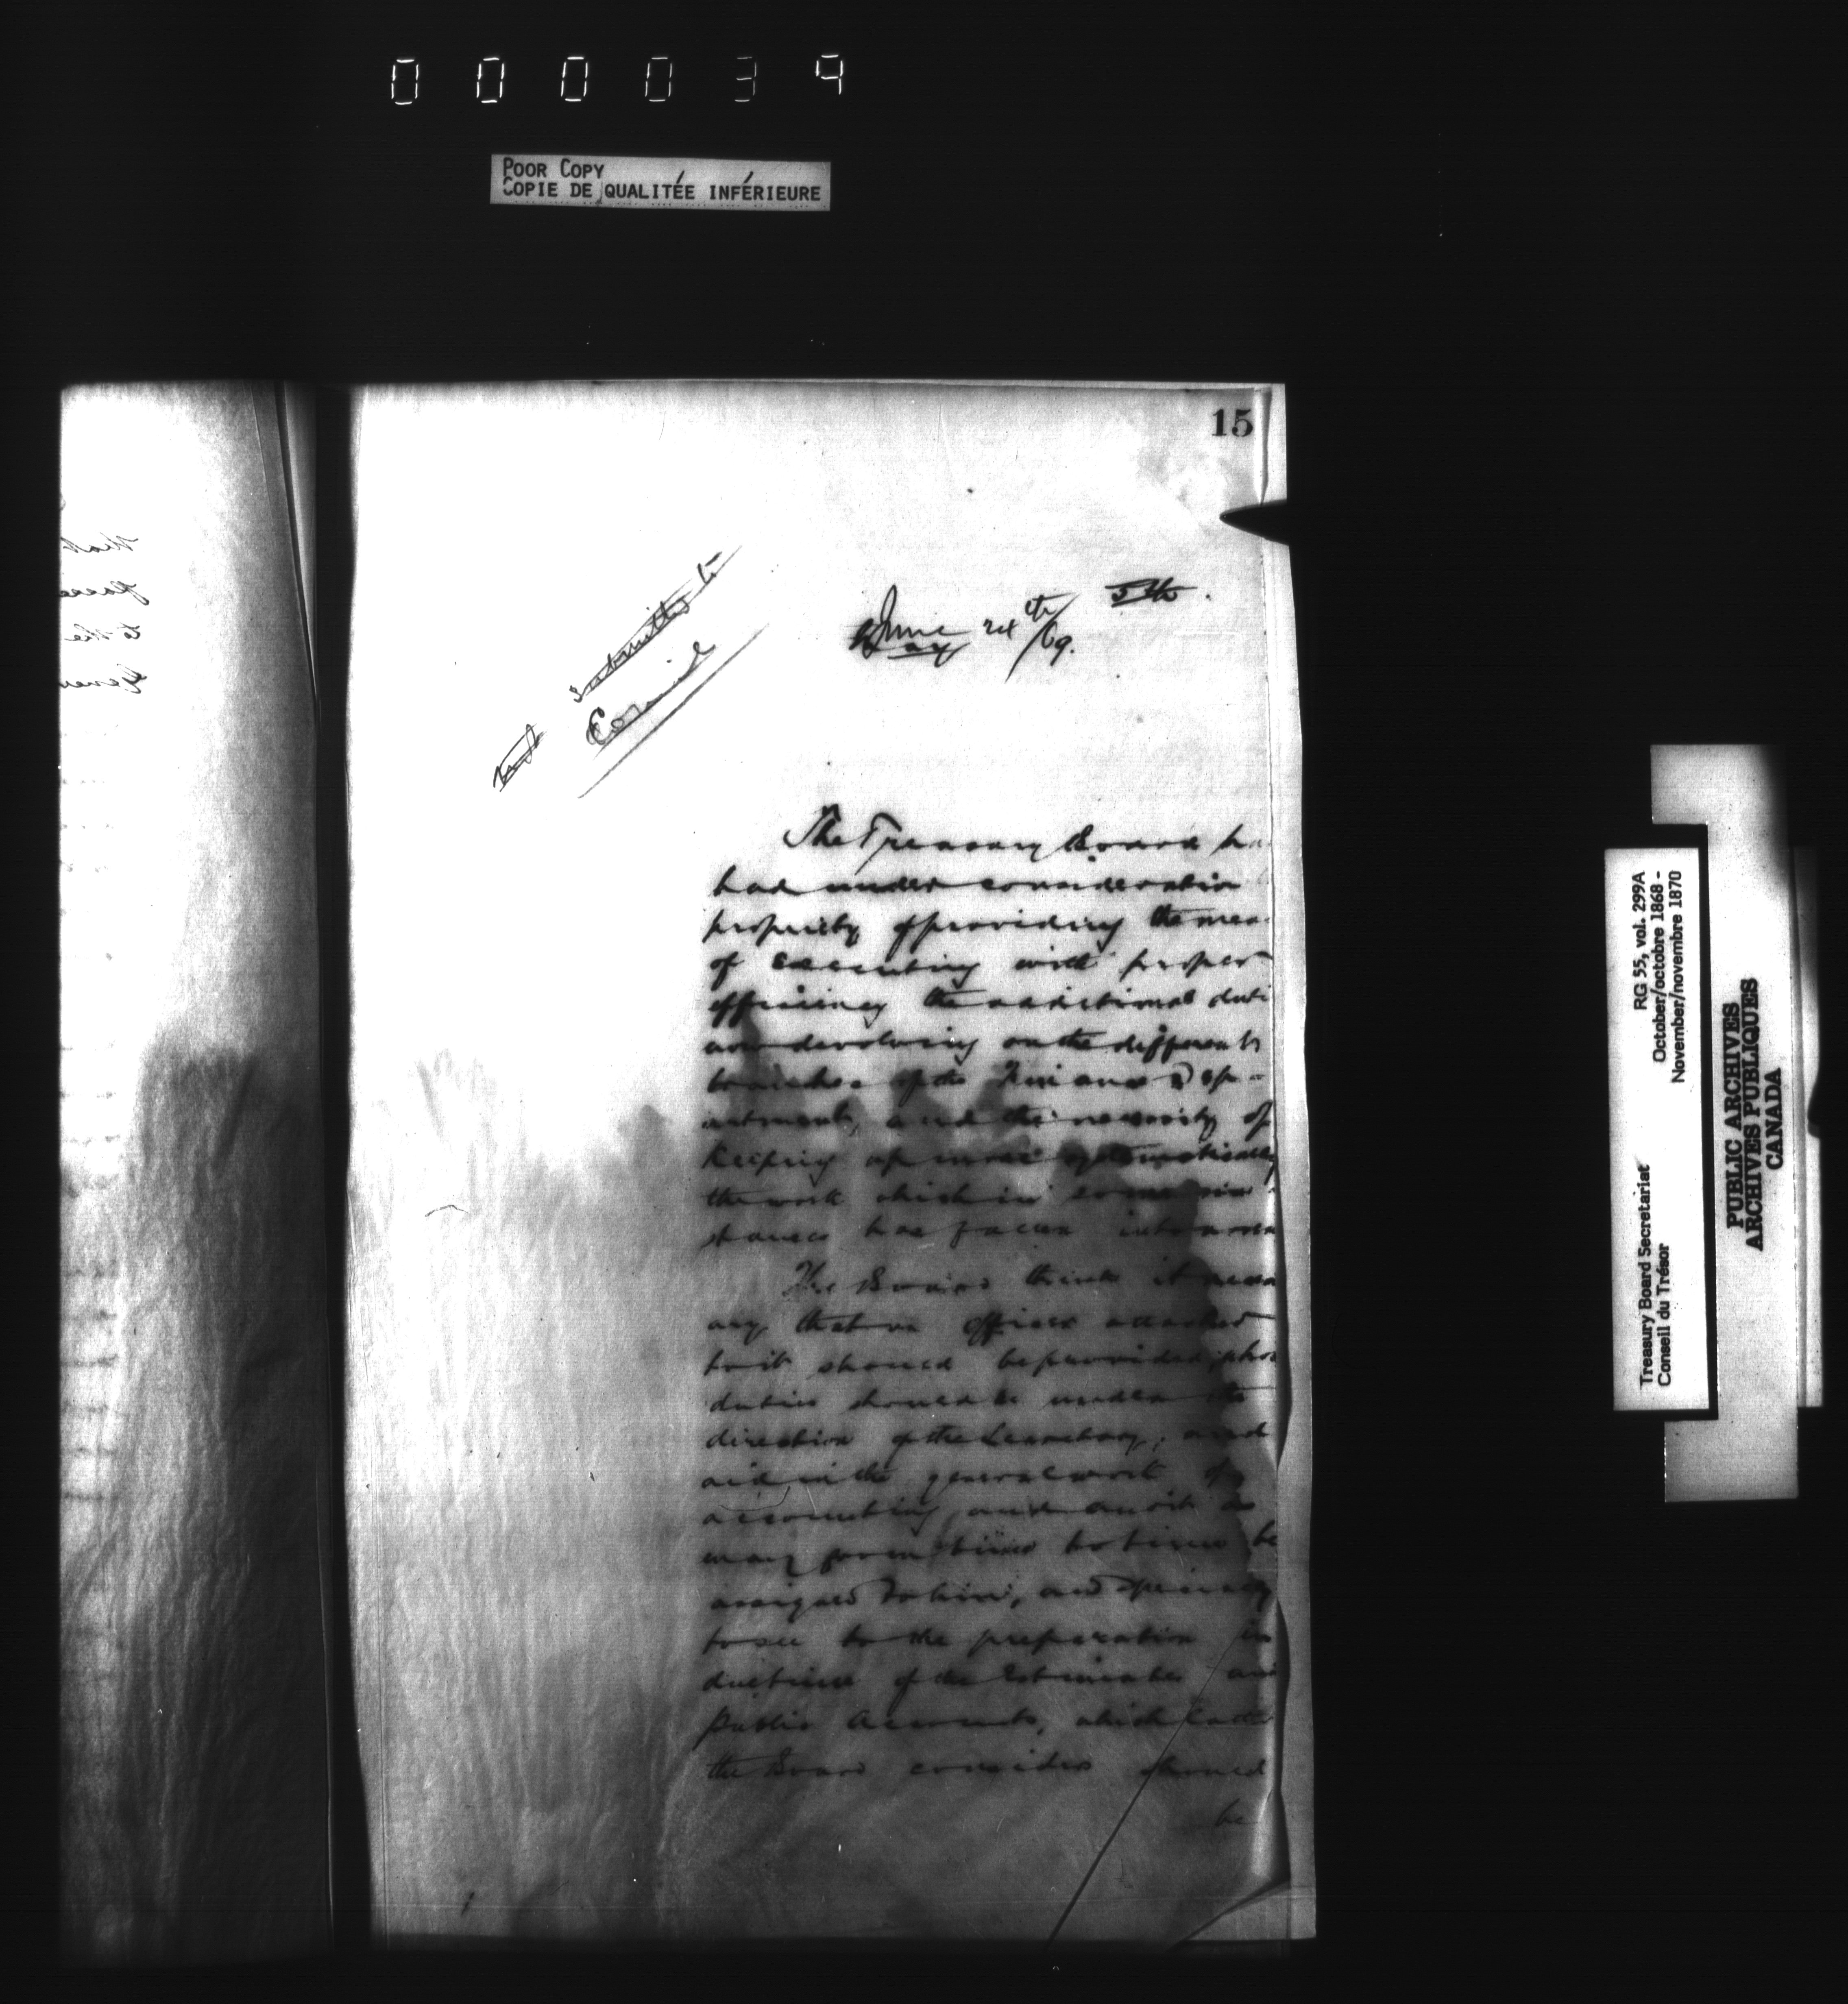 000039
POOR COPY
COPIE DE QUALITÉE INFÉRIEURE
15
June 24th/69. 5th.
May
not submitted to
Council
The Treasury Board ha
had under consideration
propriety of providing the mea
of executing with proper
efficiency the additional duti
now devolving on the different
branches of the Finance Dep-
artment, and the necessity of
keeping up more systematically
the work which in some
stances has fallen into arrea
The Board think it necess
ary that an officer attached
to it should be provided, whos
duties should be under the
direction of the Secretary, and
aid in the general work of
accounting and audit as
may from time to time be
assigned to him, and specially
to see to the preparation in
due time of the Estimates and
Public Accounts, which latter
the Board considers should
be
that
to the
RG 55, vol. 299A
October/octobre 1868 -
November/novembre 1870
Treasury Board Secretariat
Conseil du Trésor
PUBLIC ARCHIVES
ARCHIVES PUBLIQUES
CANADA